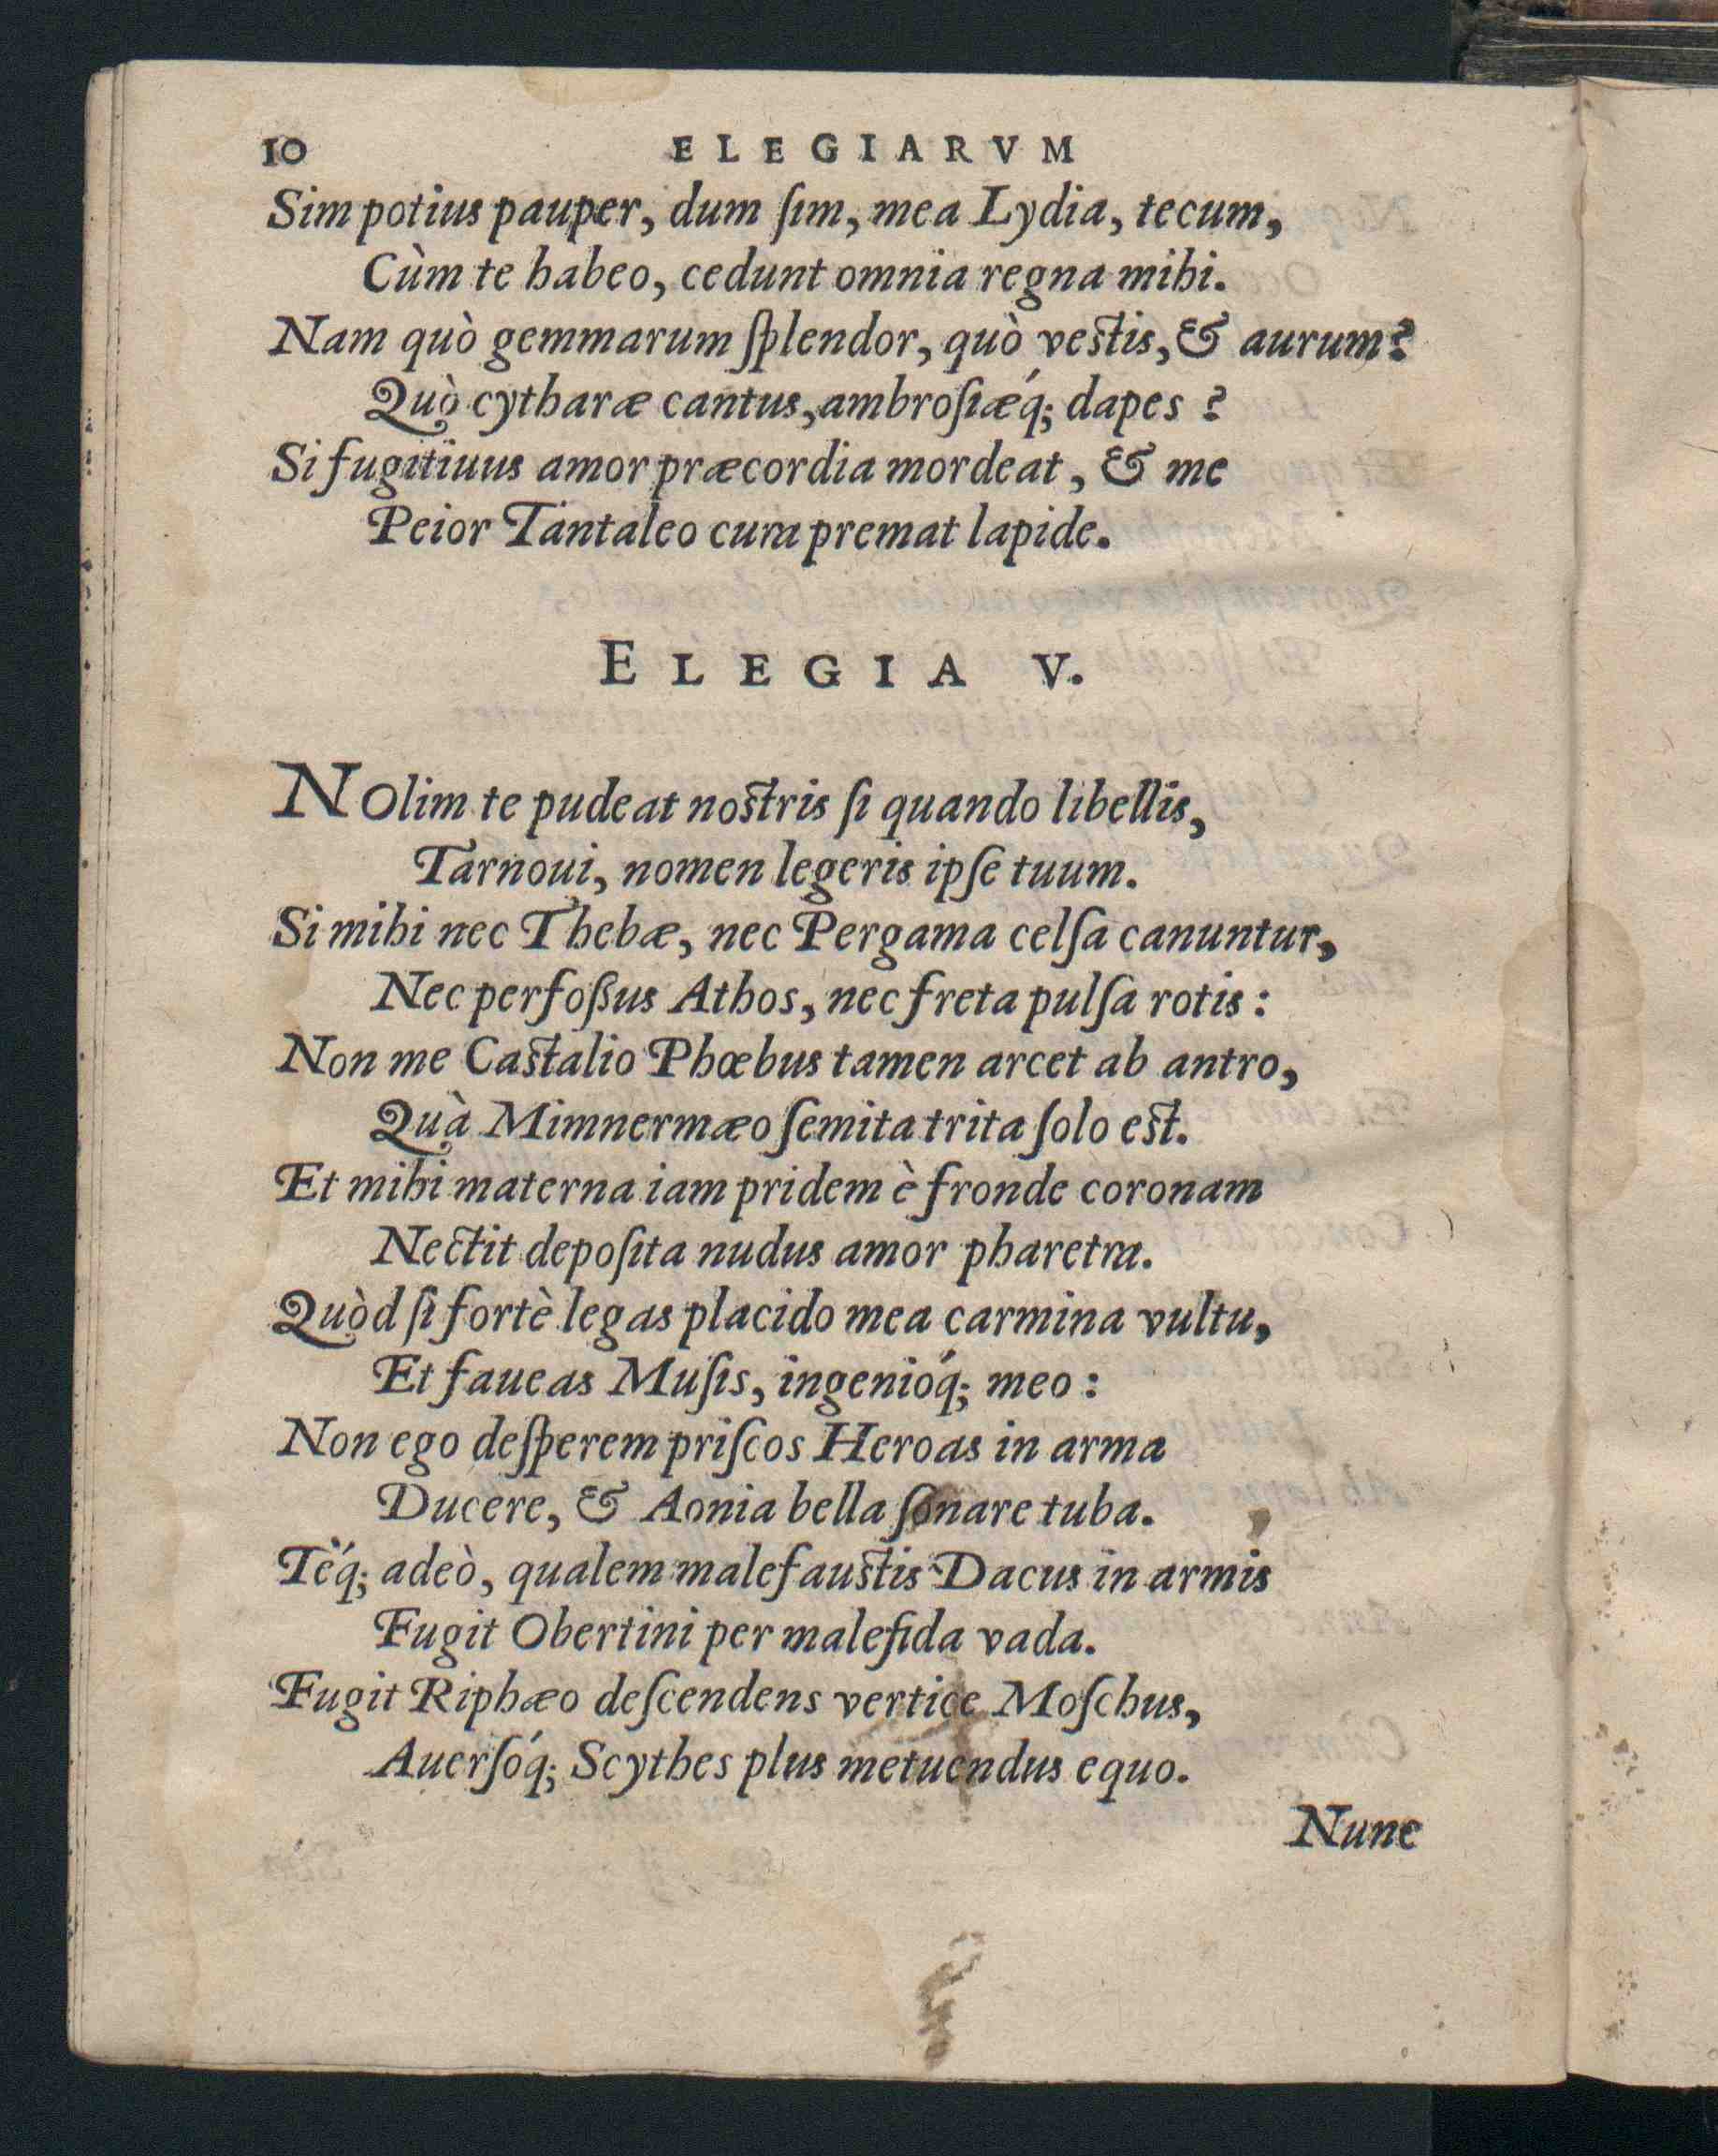 10 ELEGIARVM
Sim potius pauper, dum ſim, mea Lydia, tecum,
Cùm te habeo, cedunt omnia regna mihi.
Nam quò gemmarum ſplendor, quò veſtis, & aurum?
Quò cytharæ cantus, ambroſiæq́; dapes?
Si fugitiuus amor præcordia mordeat, & me
Peior Tantaleo cura premat lapide.
ELEGIA V.
NOlim te pudeat noſtris ſi quando libellis,
Tarnoui, nomen legeris ipſe tuum.
Si mihi nec Thebæ, nec Pergama celſa canuntur,
Nec perfoßus Athos, nec freta pulſa rotis:
Non me Caſtalio Phœbus tamen arcet ab antro,
Quà Mimnermæo ſemita trita ſolo eſt.
Et mihi materna iam pridem è fronde coronam
Nectit depoſita nudus amor pharetra.
Quòd ſi fortè legas placido mea carmina vultu,
Et faueas Muſis, ingenioq́; meo:
Non ego deſperem priſcos Heroas in arma
Ducere, & Aonia bella ſonare tuba.
Teq́; adeò, qualem malefauſtis Dacus in armis
Fugit Obertini per malefida vada.
Fugit Riphæo deſcendens vertice Moſchus,
Auerſoq́; Scythes plus metuendus equo.
Nunc